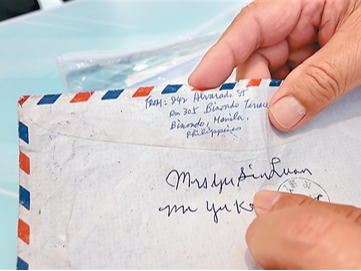 FROM: 842 Alvarado St
Rm 305 Binondo Terrace
Binondo, Manila,
Philippines
Mrs Yu Sin Luan
Yu